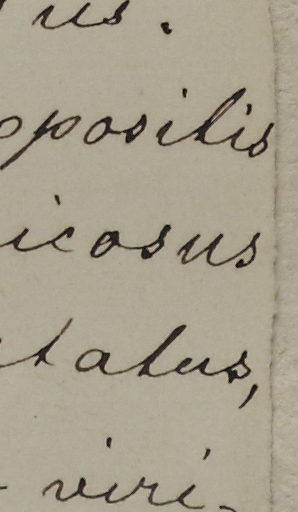 us.
opositis
icosus
tatus,
- viri-